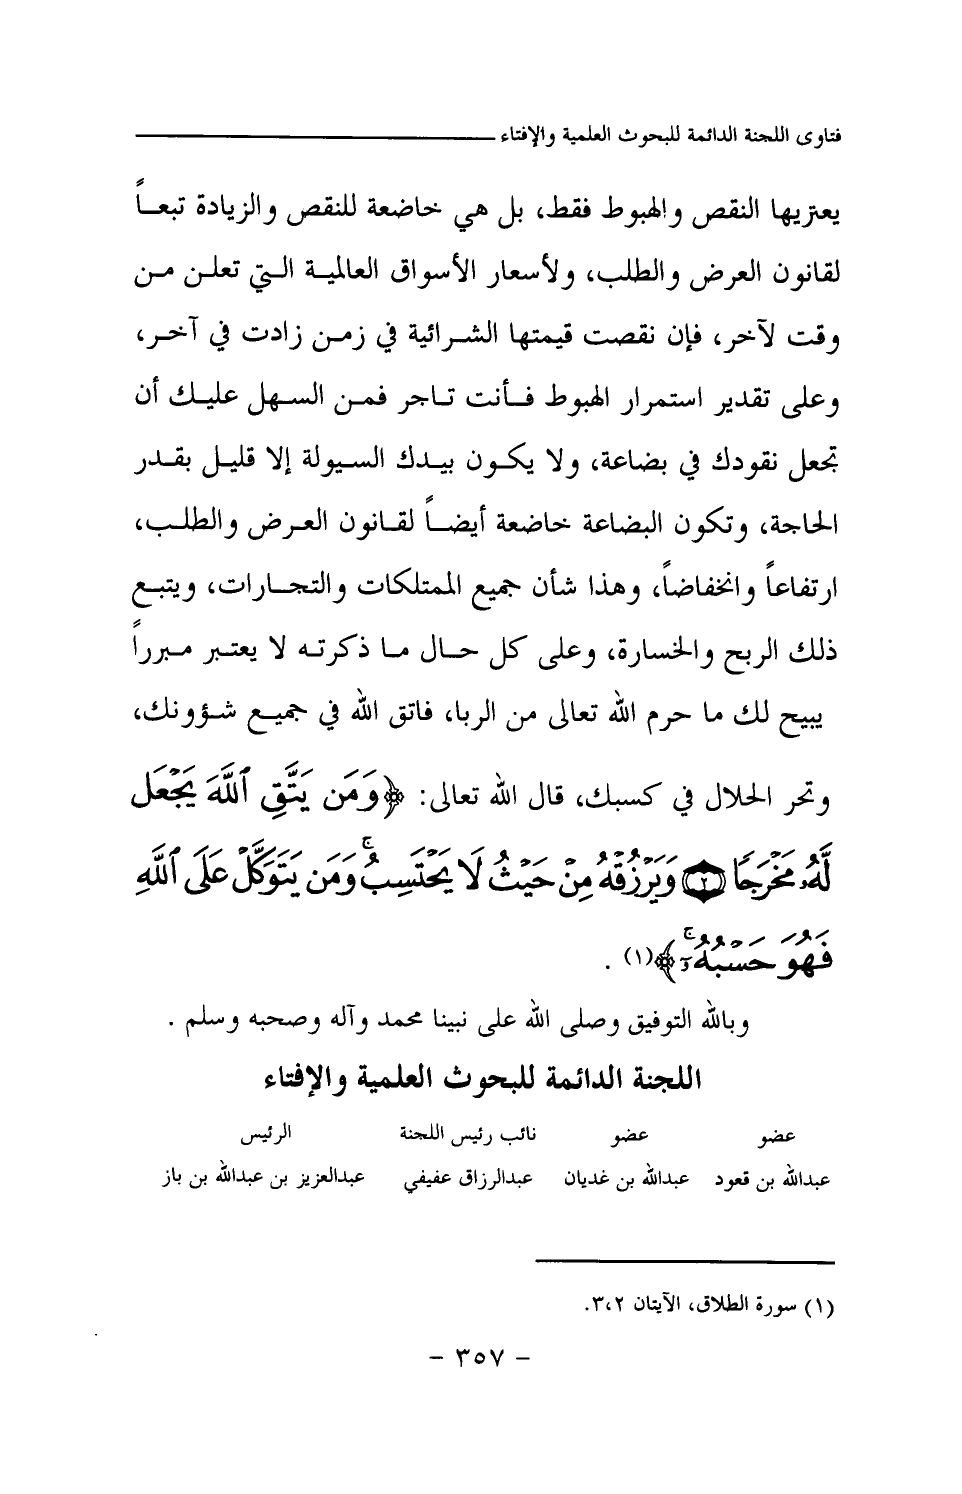 فتاوى اللجنة الدائمة للبحوث العلمية والإفتاء
يعتريها النقص والهبوط فقط، بل هي خاضعة للنقص والزيادة تبعاً
لقانون العرض والطلب، ولأسعار الأسواق العالمية التي تعلن من
وقت لآخر، فإن نقصت قيمتها الشرائية في زمن زادت في آخر،
وعلى تقدير استمرار الهبوط فأنت تاجر فمن السهل عليك أن
تجعل نقودك في بضاعة، ولا يكون بيدك السيولة إلا قليل بقدر
الحاجة، وتكون البضاعة خاضعة أيضاً لقانون العرض والطلب،
ارتفاعاً وانخفاضاً، وهذا شأن جميع الممتلكات والتجارات، ويتبع
ذلك الربح والخسارة، وعلى كل حال ما ذكرته لا يعتبر مبرراً
يبيح لك ما حرم الله تعالى من الربا، فاتق الله في جميع شؤونك،
وتحر الحلال في كسبك، قال الله تعالى: ﴿وَمَن يَتَّقِ ٱللَّهَ يَجْعَل
لَّهُۥ مَخْرَجًا ﴿٢﴾ وَيَرْزُقْهُ مِنْ حَيْثُ لَا يَحْتَسِبُ ۚ وَمَن يَتَوَكَّلْ عَلَى ٱللَّهِ
فَهُوَ حَسْبُهُۥٓ ۚ﴾(١) .
وبالله التوفيق وصلى الله على نبينا محمد وآله وصحبه وسلم .
اللجنة الدائمة للبحوث العلمية والإفتاء
عضو عضو نائب رئيس اللجنة الرئيس
عبدالله بن قعود عبدالله بن غديان عبدالرزاق عفيفي عبدالعزيز بن عبدالله بن باز
(١) سورة الطلاق، الآيتان ٣،٢.
- ٣٥٧ -